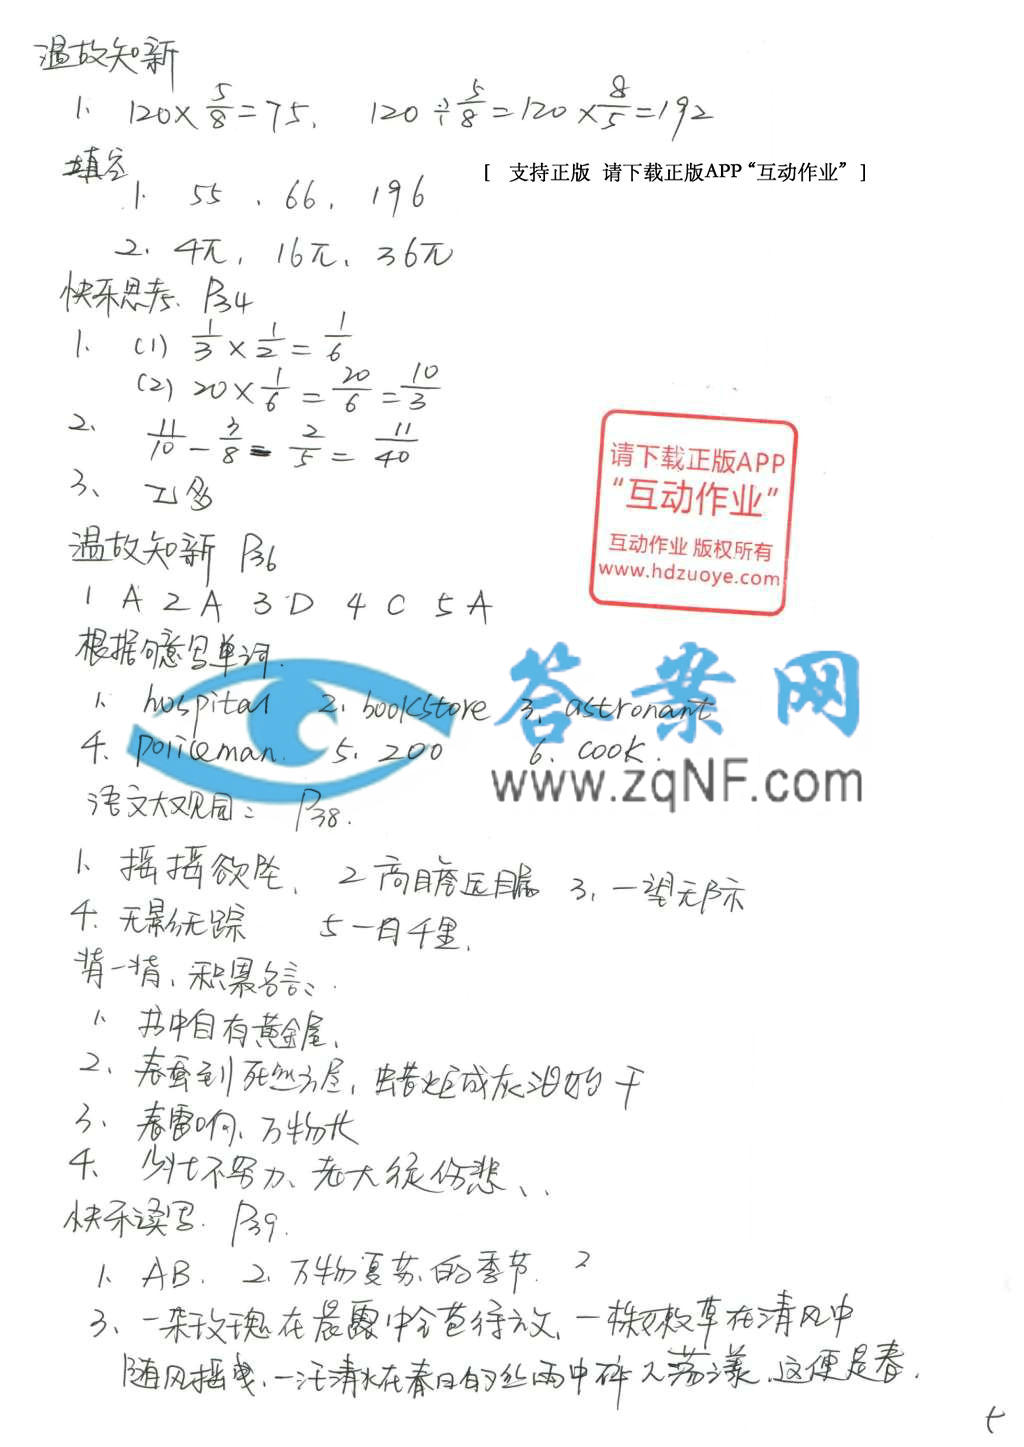 温故知新
1. 120×5/8=75, 120÷5/8=120×8/5=192
填空
[ 支持正版 请下载正版APP“互动作业” ]
1. 55, 66, 196
2. 4元, 16元, 36元
快乐思考. P34
1. (1) 1/3×1/2=1/6
(2) 20×1/6=20/6=10/3
2. 11/10-3/8=2/5=11/40
请下载正版APP
“互动作业”
互动作业 版权所有
www.hdzuoye.com
3、
温故知新 P36
1 A 2 A 3 D 4 C 5 A
根据句意写单词.
1. hospital 2. bookstore 3. astronant
4. policeman. 5. 200 6. cook.
答案网
www.zqNF.com
语文大观园: P38.
1、摇摇欲坠, 2 高瞻远瞩 3、一望无际
4. 无影无踪 5 一日千里.
背一背, 积累名言、
1. 书中自有黄金屋,
2. 春蚕到死丝方尽, 蜡炬成灰泪始干
3. 春雷响, 万物长
4. 少壮不努力、老大徒伤悲、、
快乐读写. P39.
1. AB. 2. 万物复苏的季节. 2
3、一朵玫瑰在晨露中含苞待放, 一株嫩草在清风中
随风摇曳, 一汪清水在春日的丝雨中荡漾, 这便是春.